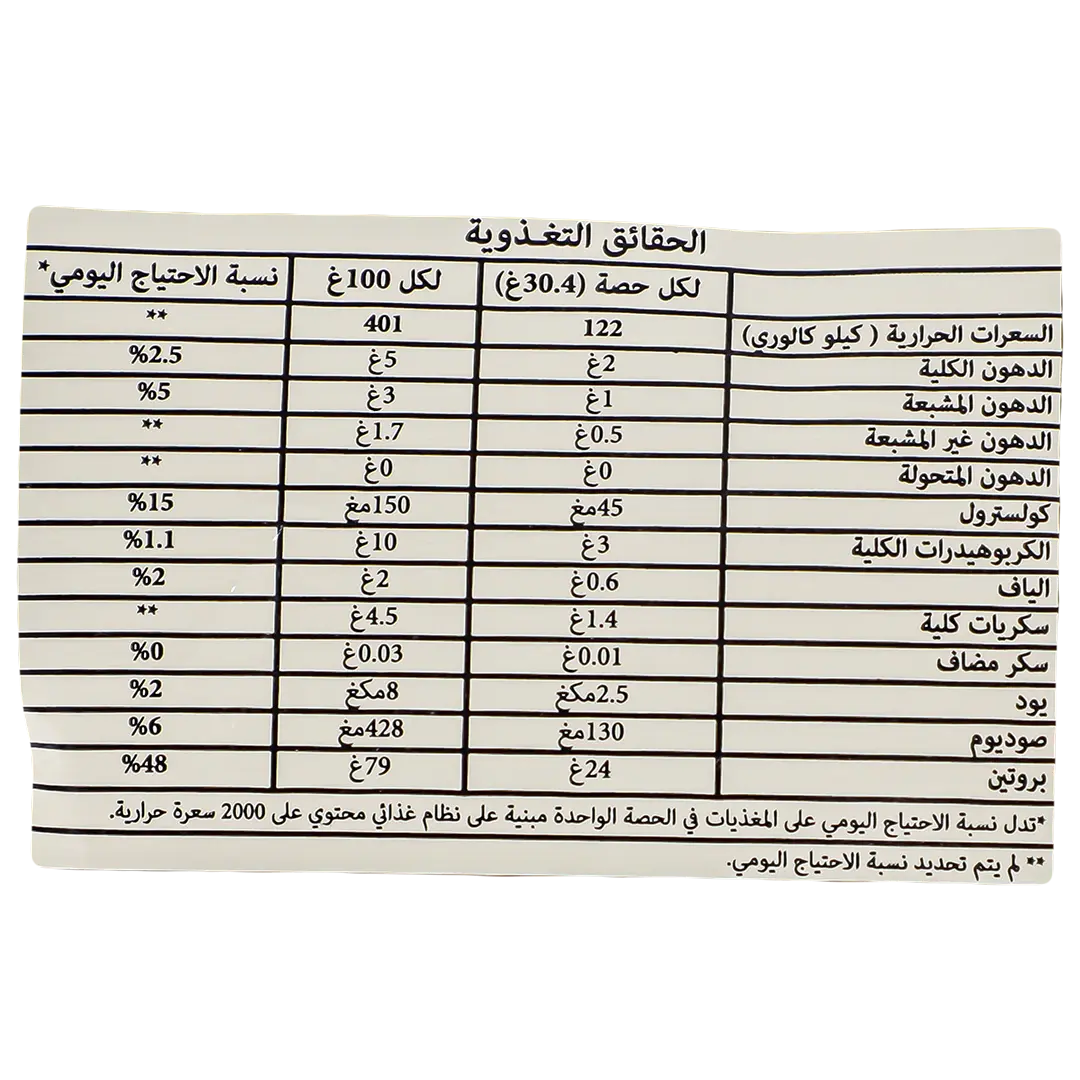 الحقائق التغذوية
لكل حصة (30.4غ) لكل 100غ نسبة الاحتياج اليومي*
السعرات الحرارية ( كيلو كالوري) 122 401 **
الدهون الكلية 2غ 5غ 2.5%
الدهون المشبعة 1غ 3غ 5%
الدهون غير المشبعة 0.5غ 1.7غ **
الدهون المتحولة 0غ 0غ **
كولسترول 45مغ 150مغ 15%
الكربوهيدرات الكلية 3غ 10غ 1.1%
الياف 0.6غ 2غ 2%
سكريات كلية 1.4غ 4.5غ **
سكر مضاف 0.01غ 0.03غ 0%
يود 2.5مكغ 8مكغ 2%
صوديوم 130مغ 428مغ 6%
بروتين 24غ 79غ 48%
*تدل نسبة الاحتياج اليومي على المغذيات في الحصة الواحدة مبنية على نظام غذائي محتوي على 2000 سعرة حرارية.
** لم يتم تحديد نسبة الاحتياج اليومي.